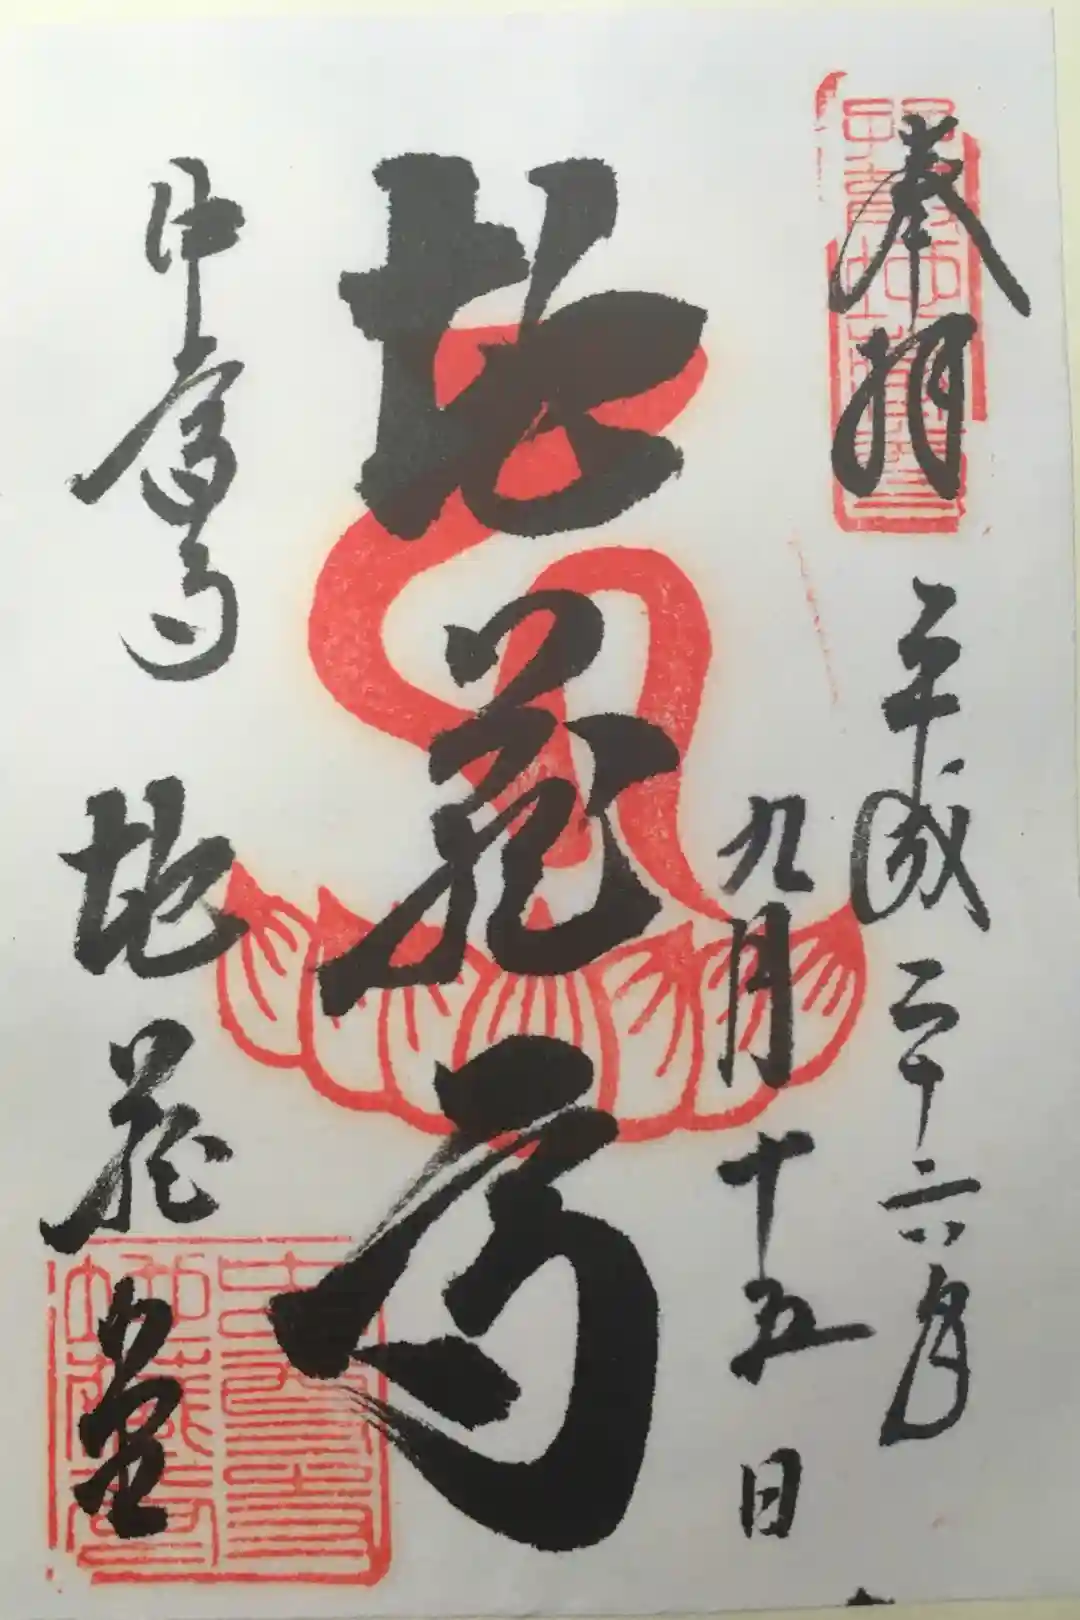 奉拝
平成二十六年
九月十五日
地蔵尊
中尊寺
地蔵堂